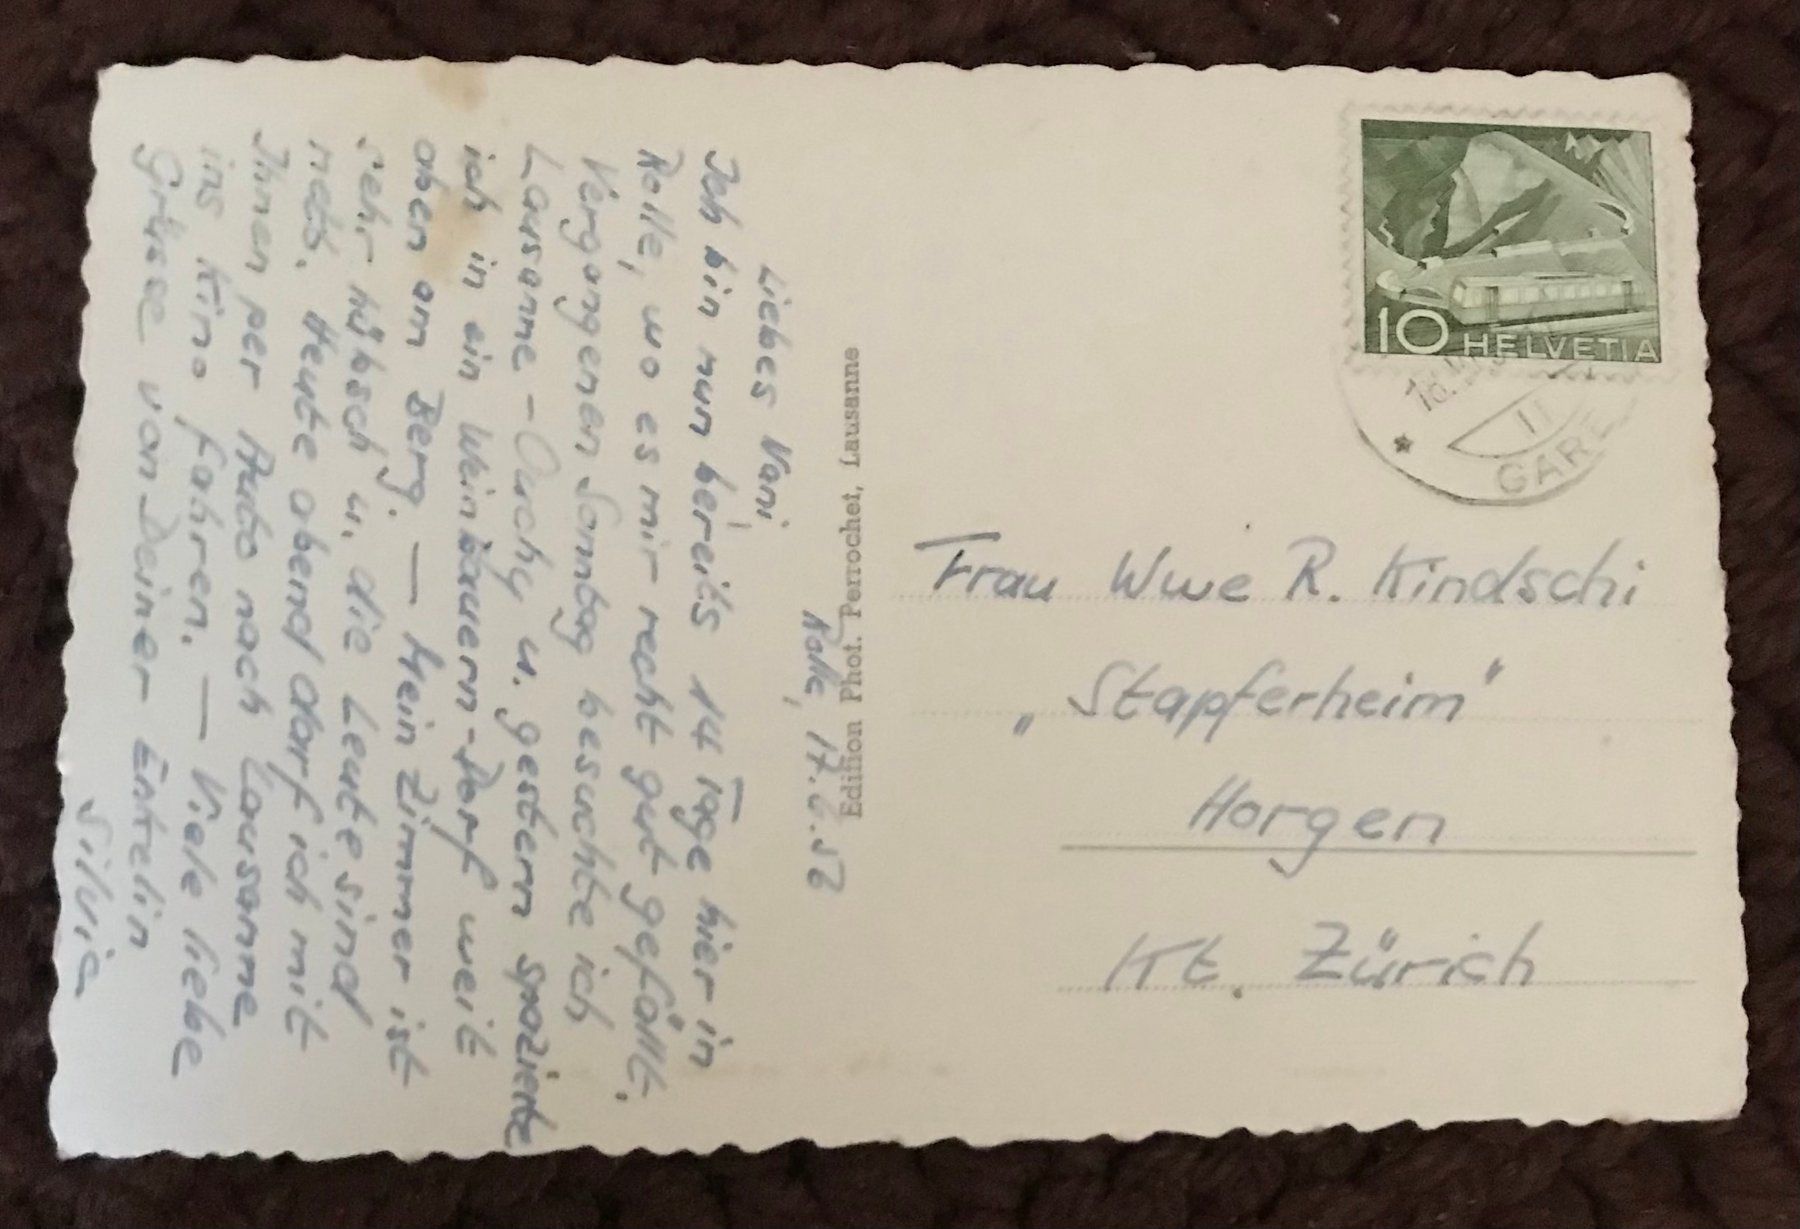 Rolle, 17.6.52
Liebes Nani,
Ich bin nun bereits 14 Tage hier in
Rolle, wo es mir recht gut gefällt.
Vergangenen Sonntag besuchte ich
Lausanne-Ouchy u. gestern spazierte
ich in ein Weinbauern-Dorf weit
oben am Berg. — Mein Zimmer ist
sehr hübsch u. die Leute sind
nett. Heute abend darf ich mit
Ihnen per Auto nach Lausanne
ins Kino fahren. — Viele liebe
Grüsse von Deiner Enkelin
Silvia
Edition Phot. Perrochet, Lausanne
10 HELVETIA
18.
11
GARE
Frau Wwe R. Kindschi
„Stapferheim"
Horgen
Kt. Zürich